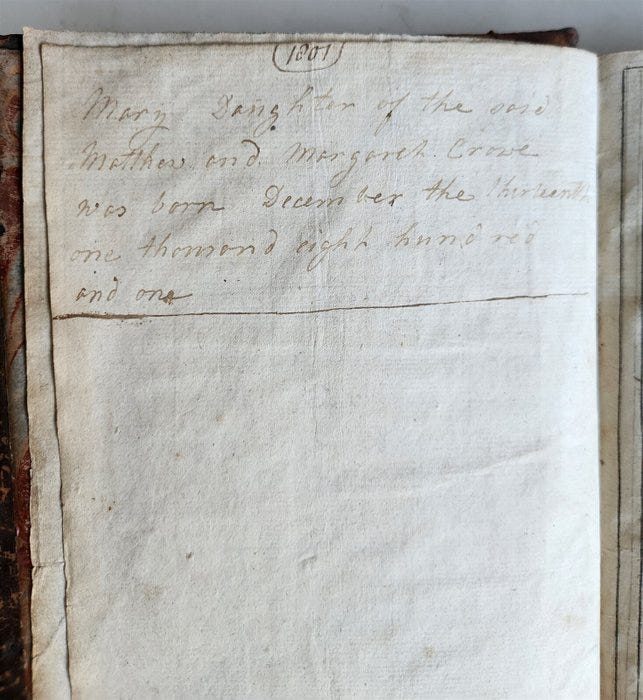 1801
Mary Daughter of the said
Matthew and Margaret Crowe
was born December the thirteenth
one thousand eight hundred
and one